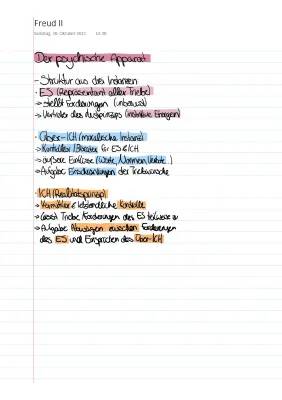 Freud II
Der psychische Apparat
- Struktur aus drei Instanzen
- ES (Repräsentant aller Triebe)
→ stellt Forderungen (unbewusst)
→ Vertreter des Lustprinzips
Über-ICH (moralische Instanz)
→ Kontrolle / Berater für ES & ICH
→ äußere Einflüsse (Werte, Normen
→ Aufgabe: Einschränkungen der Triebwünsche
ICH (Realitätsprinzip)
→ Vermittler & letztendliche Kontrolle
→ lässt Triebe / Forderungen des ES teilweise zu
→ Aufgabe: Abwägen zwischen Forderungen
des ES und Einsprüchen des Über-ICH